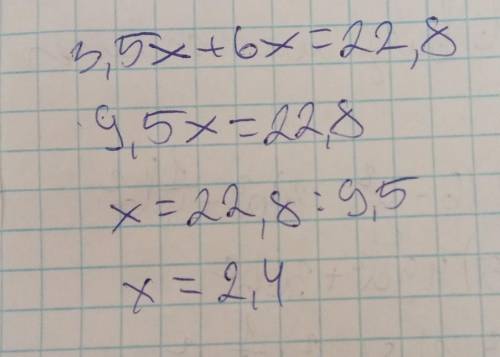 3,5x+6x=22,8
9,5x=22,8
x=22,8:9,5
x=2,4